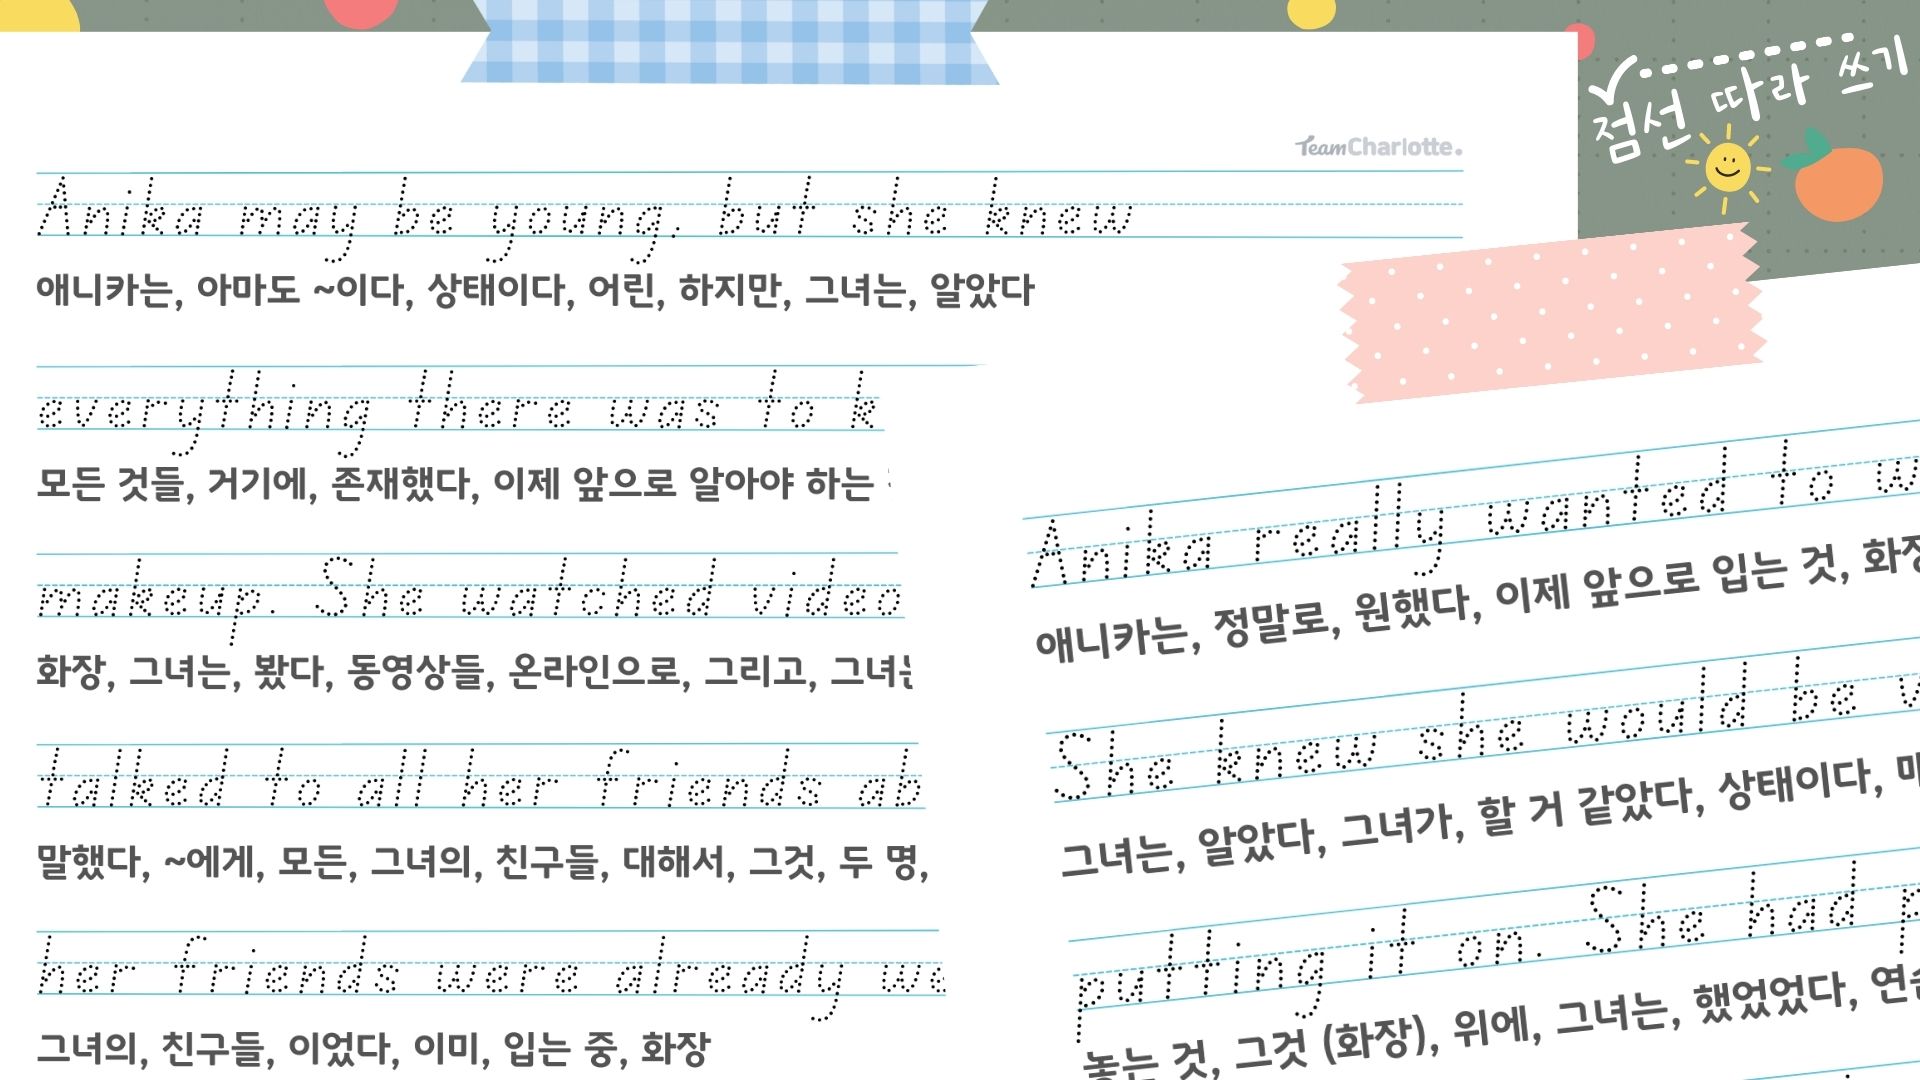 점선 따라 쓰기
TeamCharlotte.
Anika may be young, but she knew
애니카는, 아마도 ~이다, 상태이다, 어린, 하지만, 그녀는, 알았다
everything there was to k
모든 것들, 거기에, 존재했다, 이제 앞으로 알아야 하는
makeup. She watched video
화장, 그녀는, 봤다, 동영상들, 온라인으로, 그리고, 그녀는
talked to all her friends ab
말했다, ~에게, 모든, 그녀의, 친구들, 대해서, 그것, 두 명,
her friends were already we
그녀의, 친구들, 이었다, 이미, 입는 중, 화장
Anika really wanted to w
애니카는, 정말로, 원했다, 이제 앞으로 입는 것, 화장
She knew she would be
그녀는, 알았다, 그녀가, 할 거 같았다, 상태이다,
putting it on. She had p
놓는 것, 그것 (화장), 위에, 그녀는, 했었었다,